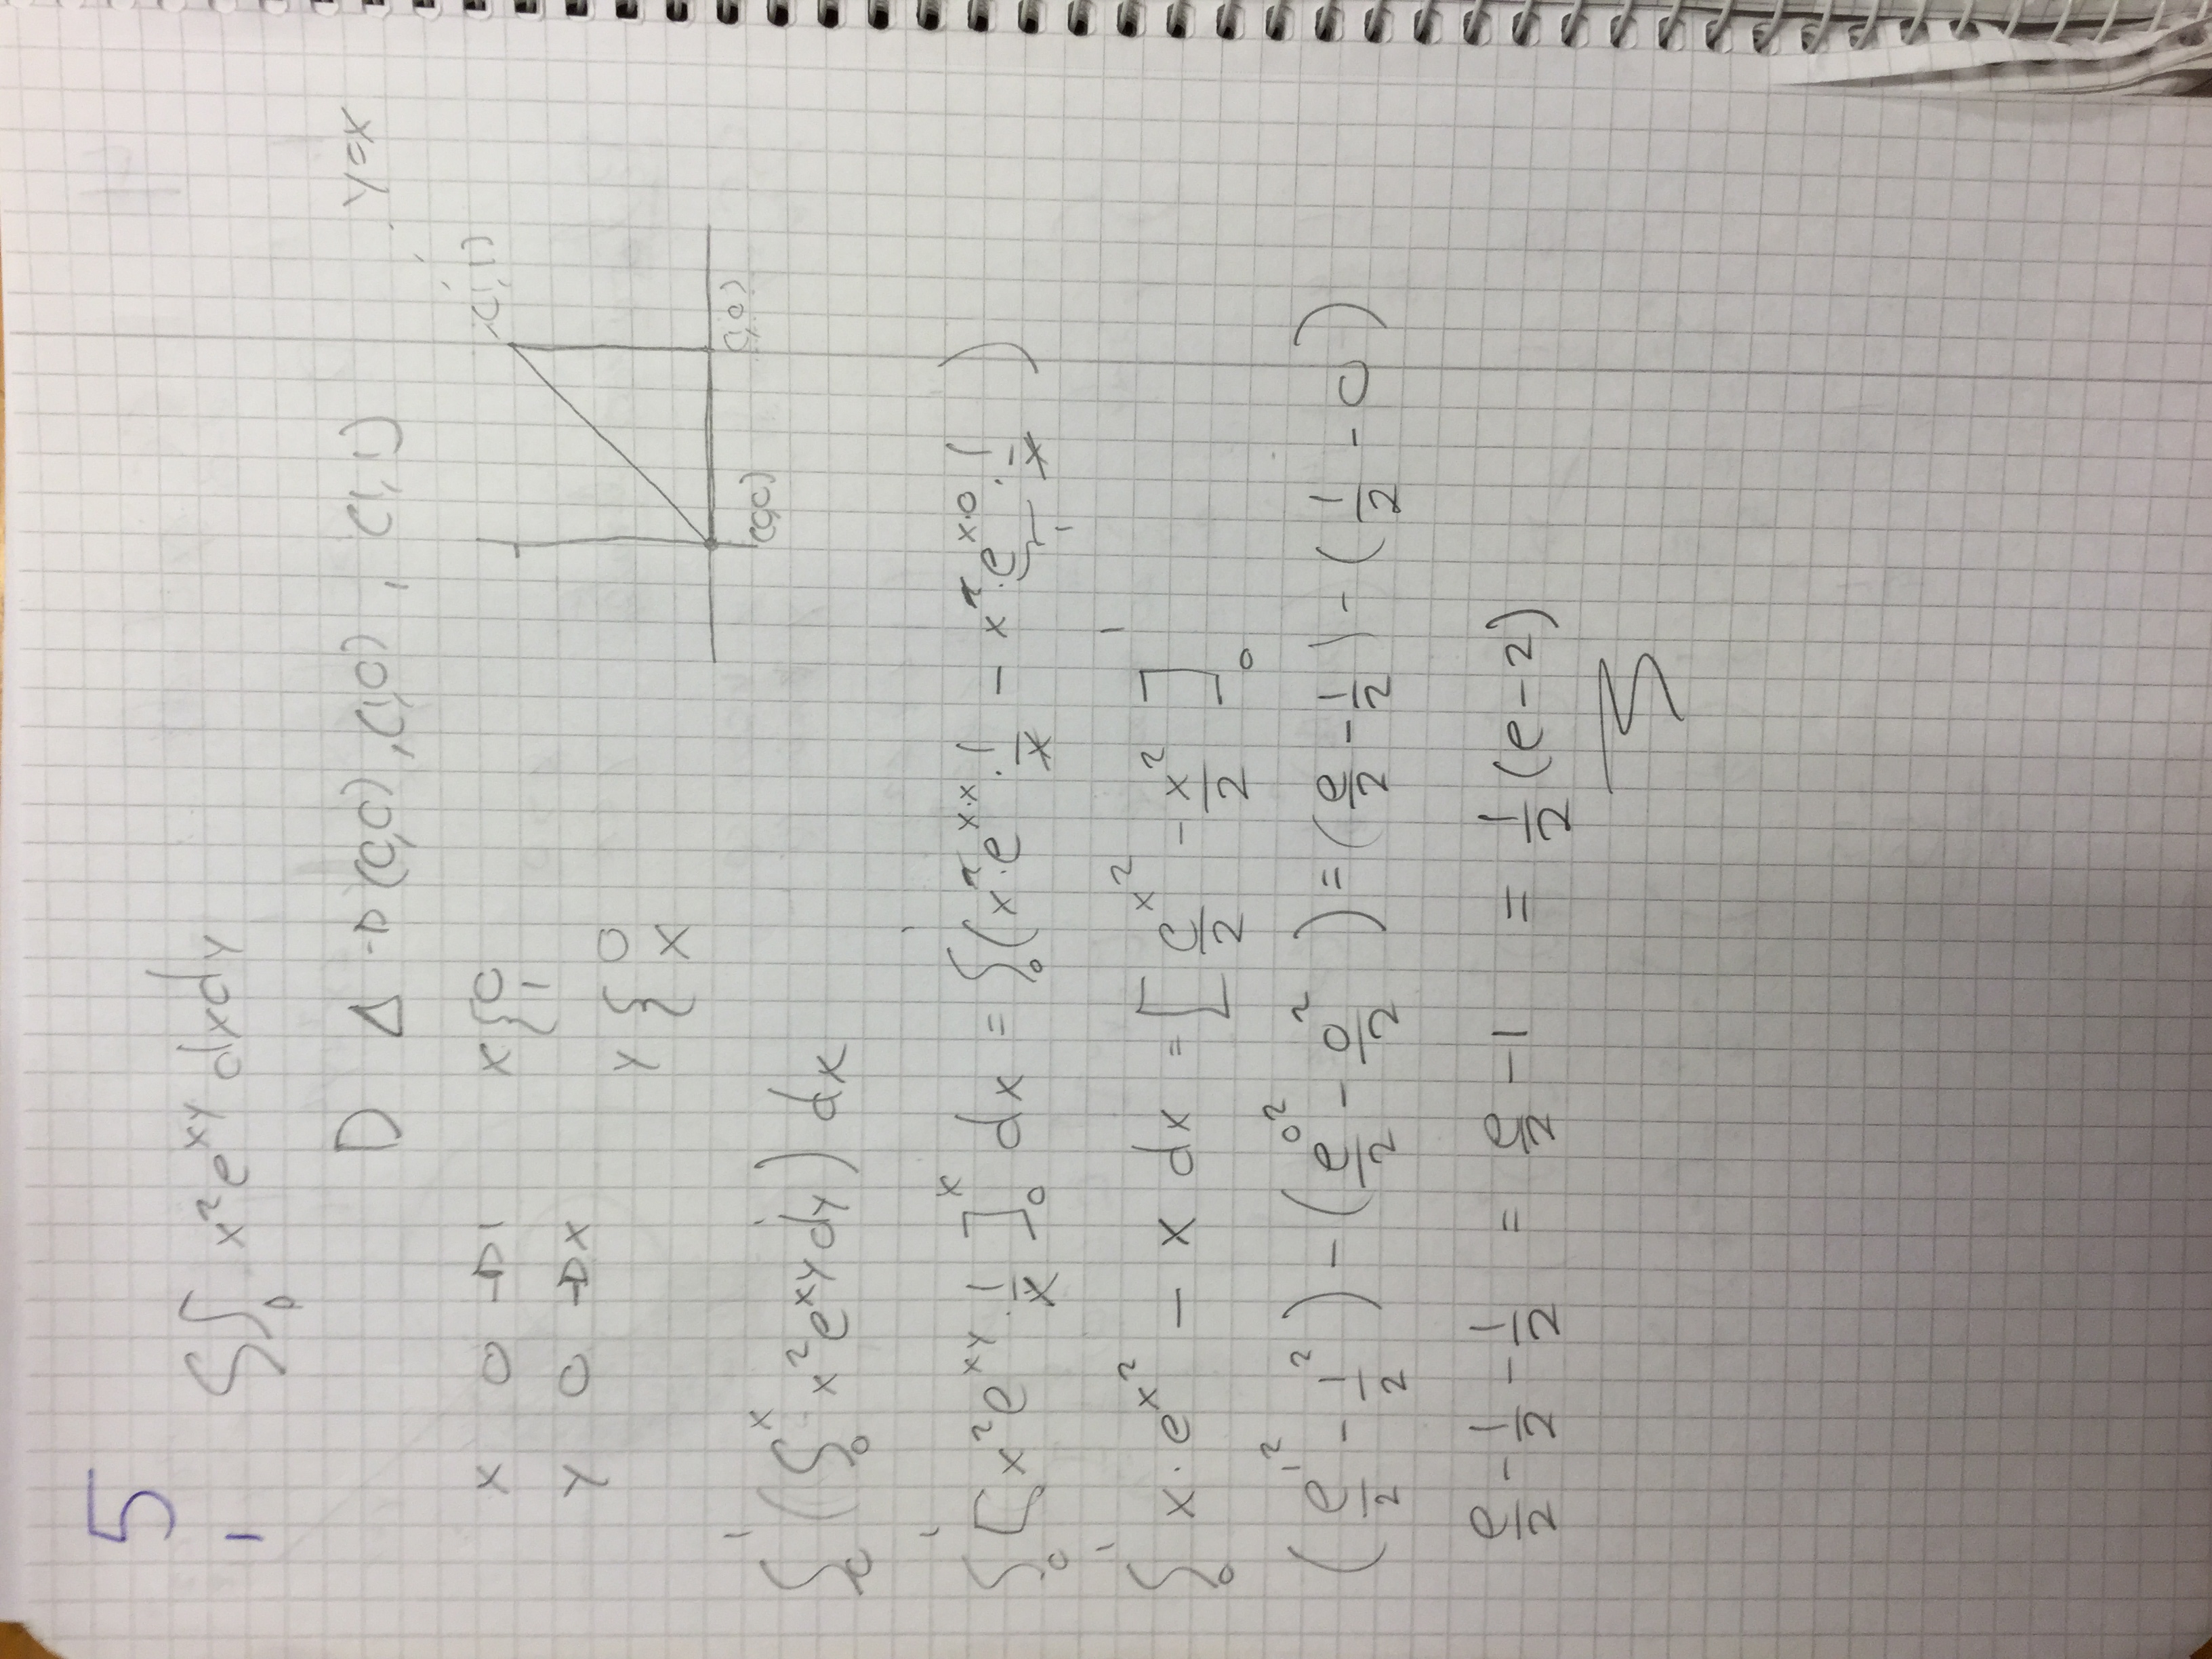 5
1 ∫∫_D x²e^{xy} dxdy
D △ → (0,0), (1,0), (1,1)
y=x
x 0 → 1 x { 0 1
y 0 → x y { 0 x
(1,1)
(0,0) (1,0)
∫_0^1 ( ∫_0^x x²e^{xy} dy ) dx
∫_0^1 [ x²e^{xy} · 1/x ]_0^x dx = ∫_0^1 ( x²·e^{x·x} · 1/x − x²·e^{x·0} · 1/x )
1
∫_0^1 x·e^{x²} − x dx = [ e^{x²}/2 − x²/2 ]_0^1
( e^{1²}/2 − 1²/2 ) − ( e^{0²}/2 − 0²/2 ) = ( e/2 − 1/2 ) − ( 1/2 − 0 )
e/2 − 1/2 − 1/2 = e/2 − 1 = 1/2 (e−2)